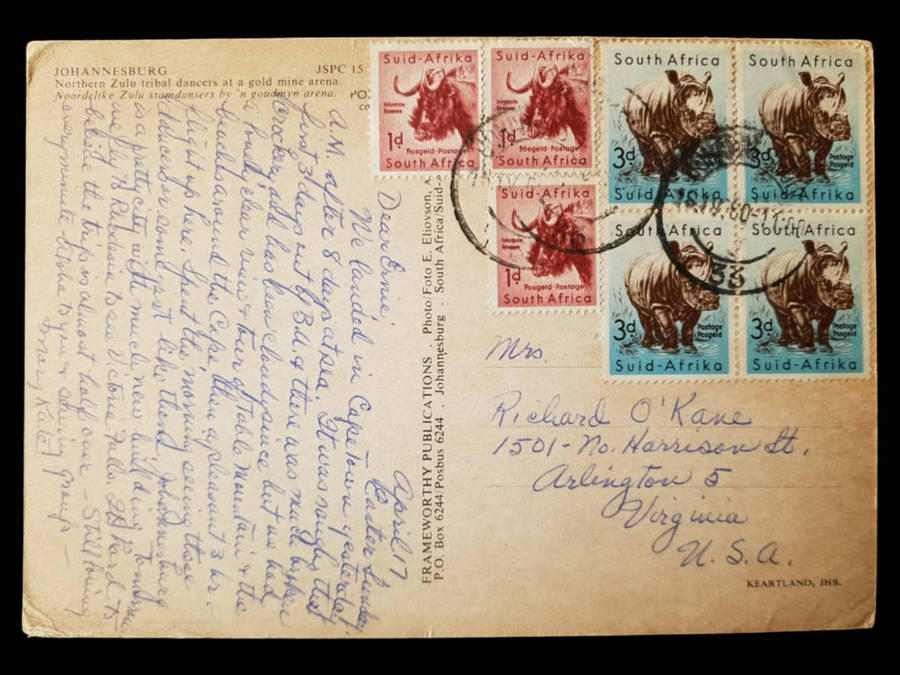 JOHANNESBURG
JSPC 15
Northern Zulu tribal dancers at a gold mine arena.
Noordelike Zulu stamdansers by 'n goudmyn arena.
Suid-Afrika
1d
Posgeld-Postage
South Africa
Suid-Afrika
1d
Posgeld-Postage
South Africa
Suid-Afrika
1d
Posgeld-Postage
South Africa
South Africa
3d
Postage
Posgeld
Suid-Afrika
South Africa
3d
Postage
Posgeld
Suid-Afrika
South Africa
3d
Postage
Posgeld
Suid-Afrika
South Africa
3d
Postage
Posgeld
Suid-Afrika
33
April 17
Easter Sunday
Dear Ernie,
We landed in Cape Town yesterday
A.N. after 8 days at sea. It was rough the
first 3 days out of B.A. & there was much broken
crockery, all has been cloudy since but we had
a lovely clear view & tour of Table Mountain & the
beaches around the Cape, then a pleasant 3 hr.
flight up here. Spent the morning seeing these
dancers or some just like them. Johannesburg
is a pretty city with much new building. Tomorrow
we fly to Rhodesia to see Victoria Falls. It's hard to
believe the trip is almost half over - Still loving
every minute
to you &
group -
FRAMEWORTHY PUBLICATIONS . Photo/Foto E. Eliovson,
P.O. Box 6244/Posbus 6244 . Johannesburg . South Africa/Suid-A
Mrs.
Richard O'Kane
1501-No. Harrison St.
Arlington 5
Virginia
U.S.A.
KEARTLAND, JHB.